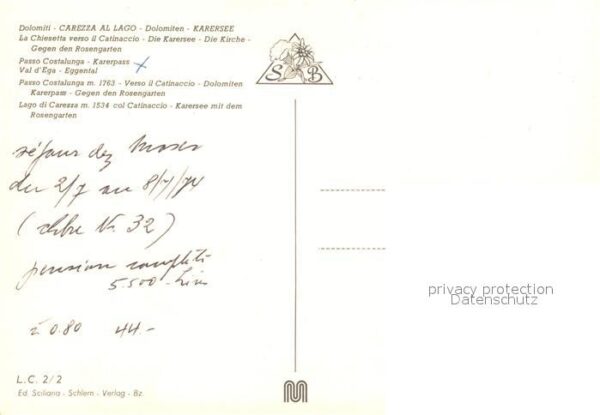 Dolomiti - CAREZZA AL LAGO - Dolomiten - KARERSEE
La Chiesetta verso il Catinaccio - Die Karersee - Die Kirche -
Gegen den Rosengarten
Passo Costalunga - Karerpass
Val d'Ega - Eggental
Passo Costalunga m. 1763 - Verso il Catinaccio - Dolomiten
Karerpass - Gegen den Rosengarten
Lago di Carezza m. 1534 col Catinaccio - Karersee mit dem
Rosengarten
S B
séjour dez Moser
du 2/7 au 8/7/74
(chbre Nr. 32)
pension complète
5.500 - Lire
à 0.80 44.-
privacy protection
Datenschutz
L.C. 2/2
Ed. Sciliana - Schlern - Verlag - Bz.